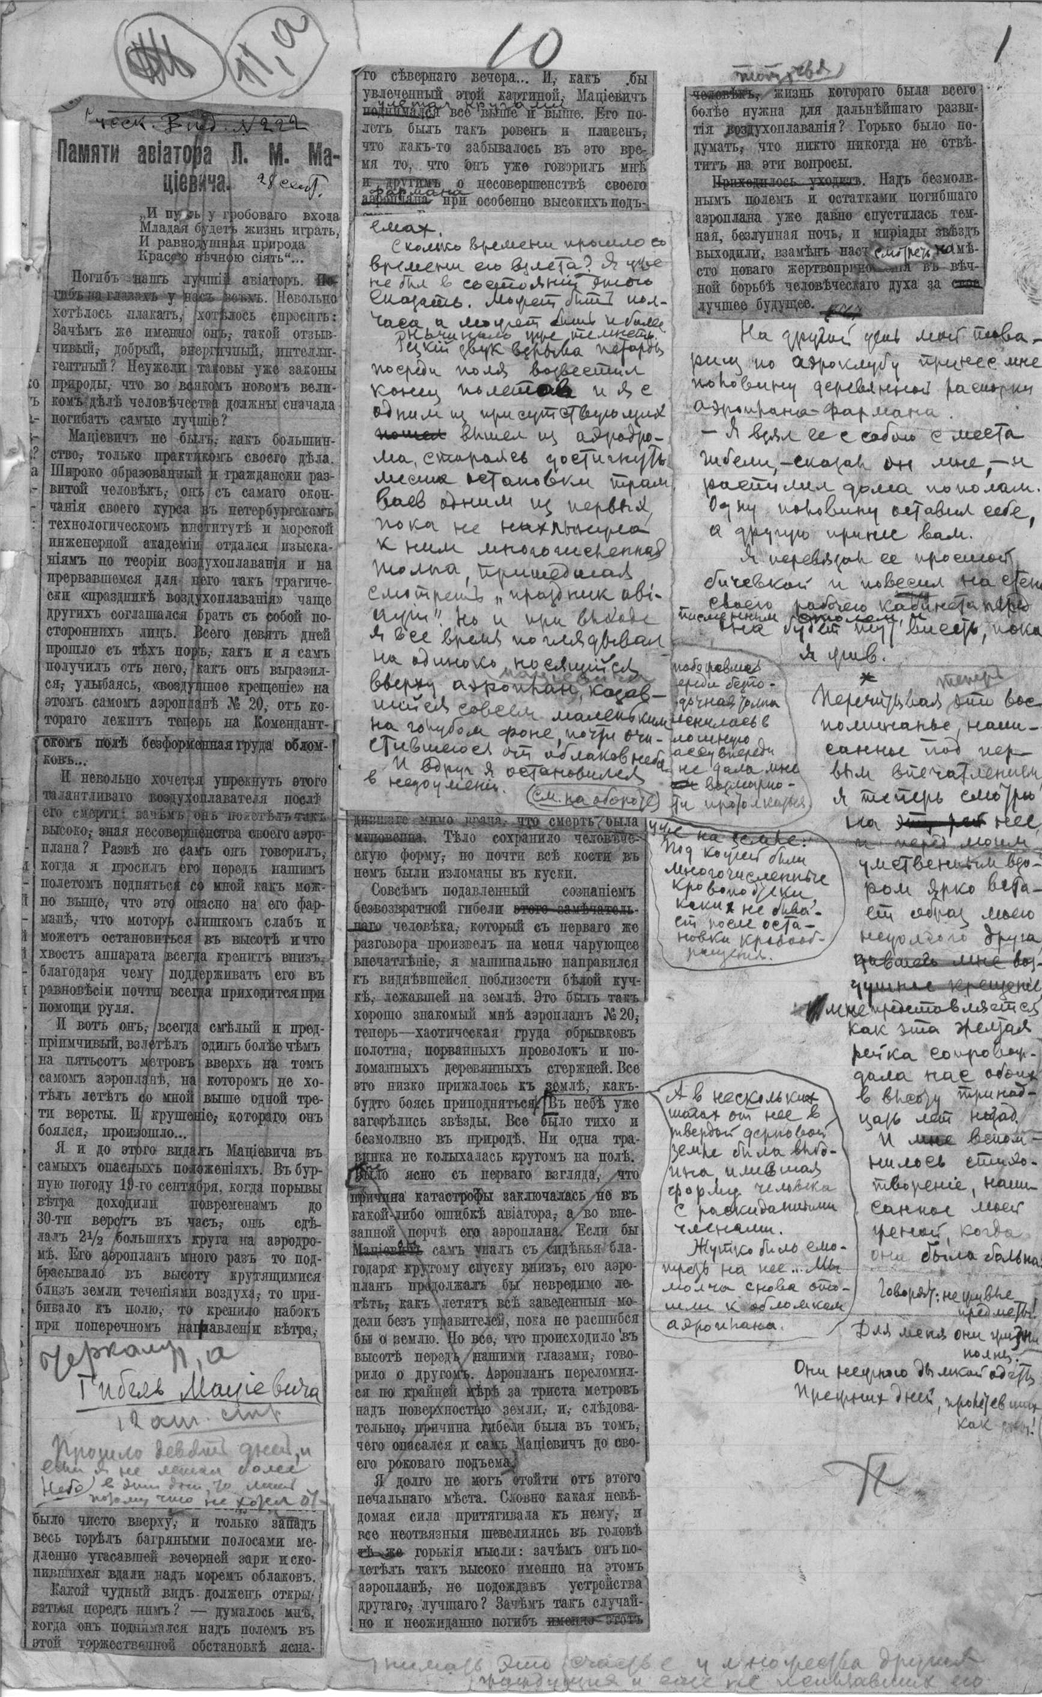 11, а
10
1
Русск. Вѣд. № 222
Памяти авіатора Л. М. Ма-
ціевича.
28 сент.
„И пусть у гробоваго входа
Младая будетъ жизнь играть,
И равнодушная природа
Красою вѣчною сіять“...
Погибъ нашъ лучшій авіаторъ. По-
гибъ на глазахъ у насъ всѣхъ. Невольно
хотѣлось плакать, хотѣлось спросить:
Зачѣмъ же именно онъ, такой отзыв-
чивый, добрый, энергичный, интелли-
гентный? Неужели таковы уже законы
природы, что во всякомъ новомъ вели-
комъ дѣлѣ человѣчества должны сначала
погибать самые лучшіе?
Маціевичъ не былъ, какъ большин-
ство, только практикомъ своего дѣла.
Широко образованный и граждански раз-
витой человѣкъ, онъ съ самаго окон-
чанія своего курса въ петербургскомъ
технологическомъ институтѣ и морской
инженерной академіи отдался изыска-
ніямъ по теоріи воздухоплаванія и на
прервавшемся для него такъ трагиче-
ски «праздникѣ воздухоплаванія» чаще
другихъ соглашался брать съ собой по-
стороннихъ лицъ. Всего девять дней
прошло съ тѣхъ поръ, какъ и я самъ
получилъ отъ него, какъ онъ выразил-
ся, улыбаясь, «воздушное крещеніе» на
этомъ самомъ аэропланѣ № 20, отъ ко-
тораго лежитъ теперь на Комендант-
скомъ полѣ безформенная груда облом-
ковъ...
И невольно хочется упрекнуть этого
талантливаго воздухоплавателя послѣ
его смерти: зачѣмъ онъ полетѣлъ такъ
высоко, зная несовершенства своего аэро-
плана? Развѣ не самъ онъ говорилъ,
когда я просилъ его передъ нашимъ
полетомъ подняться со мной какъ мож-
но выше, что это опасно на его фар-
манѣ, что моторъ слишкомъ слабъ и
можетъ остановиться въ высотѣ и что
хвостъ аппарата всегда кренитъ внизъ,
благодаря чему поддерживать его въ
равновѣсіи почти всегда приходится при
помощи руля.
И вотъ онъ, всегда смѣлый и пред-
пріимчивый, взлетѣлъ одинъ болѣе чѣмъ
на пятьсотъ метровъ вверхъ на томъ
самомъ аэропланѣ, на которомъ не хо-
тѣлъ летѣть со мной выше одной тре-
ти версты. И крушеніе, котораго онъ
боялся, произошло...
Я и до этого видалъ Маціевича въ
самыхъ опасныхъ положеніяхъ. Въ бур-
ную погоду 19-го сентября, когда порывы
вѣтра доходили повременамъ до
30-ти верстъ въ часъ, онъ сдѣ-
лалъ 2½ большихъ круга на аэродро-
мѣ. Его аэропланъ много разъ то под-
брасывало въ высоту крутящимися
близъ земли теченіями воздуха, то при-
бивало къ полю, то кренило набокъ
при поперечномъ направленіи вѣтра,
Гибель Мацiевича
Прошло девять дней, и
Небо
было чисто вверху, и только западъ
весь горѣлъ багряными полосами ме-
дленно угасавшей вечерней зари и ско-
пившихся вдали надъ моремъ облаковъ.
Какой чудный видъ долженъ откры-
ваться передъ нимъ? — думалось мнѣ,
когда онъ поднимался надъ полемъ въ
этой торжественной обстановкѣ ясна-
го сѣвернаго вечера... И, какъ бы
увлеченный этой картиной, Маціевичъ
летая кругами
поднимался все выше и выше. Его по-
летъ былъ такъ ровенъ и плавенъ,
что какъ-то забывалось въ это вре-
мя то, что онъ уже говорилъ мнѣ
и другимъ о несовершенствѣ своего
фармана
аэроплана при особенно высокихъ подъ-
емах.
Сколько времени прошло со
времени его взлета? Я уже
не был в состоянии этого
сказать. Может быть пол-
часа а может быть и более
Начинало уже темнеть
Резкий звук взрыва петарды
посреди поля возвестил
конец полетов и я с
одним из присутствующих
пошел вышел из аэродро-
ма, стараясь достигнуть
места остановки трам-
ваев одним из первых,
пока не нахлынула
к ним многочисленная
толпа, пришедшая
смотреть „праздник ави-
ации“. Но и при выходе
я все время поглядывал
на одиноко носящийся
вверху аэроплан, казав-
шийся совсем маленьким
на голубом фоне, почти очи-
стившегося от облаков неба
И вдруг я остановился
в недоумении.
см. на обороте
дившаго мимо врача, что смерть была
мгновенна. Тѣло сохранило человѣче-
скую форму, но почти всѣ кости въ
немъ были изломаны въ куски.
Совсѣмъ подавленный сознаніемъ
безвозвратной гибели этого замѣчатель-
наго человѣка, который съ перваго же
разговора произвелъ на меня чарующее
впечатлѣніе, я машинально направился
къ виднѣвшейся поблизости бѣлой куч-
кѣ, лежавшей на землѣ. Это былъ такъ
хорошо знакомый мнѣ аэропланъ № 20,
теперь—хаотическая груда обрывковъ
полотна, порванныхъ проволокъ и по-
ломанныхъ деревянныхъ стержней. Все
это низко прижалось къ землѣ, какъ-
будто боясь приподняться. Въ небѣ уже
загорѣлись звѣзды. Все было тихо и
безмолвно въ природѣ. Ни одна тра-
винка не колыхалась кругомъ на полѣ.
Было ясно съ перваго взгляда, что
причина катастрофы заключалась не въ
какой-либо ошибкѣ авіатора, а во вне-
запной порчѣ его аэроплана. Если бы
Маціевичъ самъ упалъ съ сидѣнья бла-
годаря крутому спуску внизъ, его аэро-
планъ продолжалъ бы невредимо ле-
тѣть, какъ летятъ всѣ заведенныя мо-
дели безъ управителей, пока не расшибся
бы о землю. Но все, что происходило въ
высотѣ передъ нашими глазами, гово-
рило о другомъ. Аэропланъ переломил-
ся по крайней мѣрѣ за триста метровъ
надъ поверхностью земли, и, слѣдова-
тельно, причина гибели была въ томъ,
чего опасался и самъ Маціевичъ до сво-
его роковаго подъема.
Я долго не могъ отойти отъ этого
печальнаго мѣста. Словно какая невѣ-
домая сила притягивала къ нему, и
все неотвязныя шевелились въ головѣ
тѣ же горькія мысли: зачѣмъ онъ по-
летѣлъ такъ высоко именно на этомъ
аэропланѣ, не подождавъ устройства
другаго, лучшаго? Зачѣмъ такъ случай-
но и неожиданно погибъ именно этотъ
человѣкъ, жизнь котораго была всего
болѣе нужна для дальнѣйшаго разви-
тія воздухоплаванія? Горько было по-
думать, что никто никогда не отвѣ-
титъ на эти вопросы.
Приходилось уходить. Надъ безмолв-
нымъ полемъ и остатками погибшаго
аэроплана уже давно спустилась тем-
ная, безлунная ночь, и миріады звѣздъ
выходили, взамѣнъ насъ смотреть на мѣ-
сто новаго жертвоприношенія въ вѣч-
ной борьбѣ человѣческаго духа за свое
лучшее будущее.
На другой день мой това-
рищ по аэроклубу принес мне
половину деревянной распорки
аэроплана Фармана.
— Я взял ее с собою с места
гибели, — сказал он мне, — и
распилил дома пополам.
Одну половину оставил себе,
а другую принес вам.
Я перевязал ее простой
бичевкой и повесил на стене
своего рабочего кабинета перед
письменным столом.
Она будет тут висеть, пока
я жив.
*
Перечитывая теперь это вос-
поминанье, напи-
санное под пер-
вым впечатлением,
я теперь смотрю
на нее,
и перед моим
умственным взо-
ром ярко вста-
ет образ моего
недолгого друга
давшего мне воз-
душное крещение
и мне представляется
как эта
рейка сопровож-
дала нас обоих
в высоту тринад-
цать лет назад.
И мне вспом-
нилось стихо-
творение, напи-
санное моей
женой, когда
она была больна:
Говорят: не живые
предметы!
Для меня они жизни
полны.
Они нежною дымкой одеты
Прежних дней, пролетевших
как сны!
уже на земле.
Под кожей были
многочисленные
кровоподтеки
каких не быва-
ет после оста-
новки кровооб-
ращения.
А в нескольких
шагах от нее в
твердой дерновой
земле была выбо-
ина имевшая
форму человека
с раскиданными
членами.
Жутко было смо-
треть на нее... Мы
молча снова ото-
шли к обломкам
аэроплана.